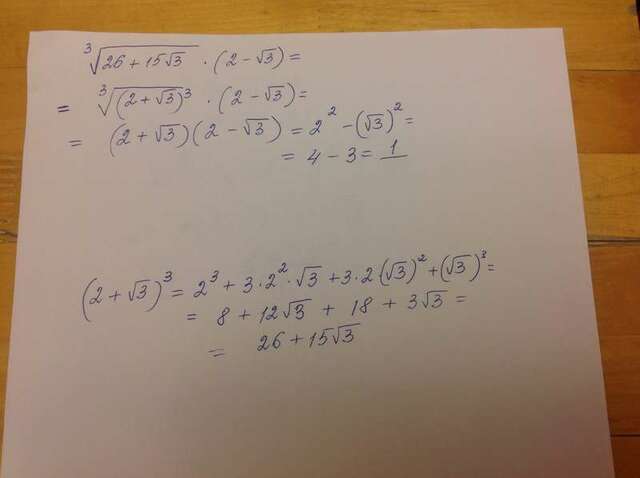 ∛(26 + 15√3) · (2 − √3) =
= ∛((2 + √3)³) · (2 − √3) =
= (2 + √3)(2 − √3) = 2² − (√3)² =
= 4 − 3 = 1
(2 + √3)³ = 2³ + 3·2²·√3 + 3·2(√3)² + (√3)³ =
= 8 + 12√3 + 18 + 3√3 =
= 26 + 15√3